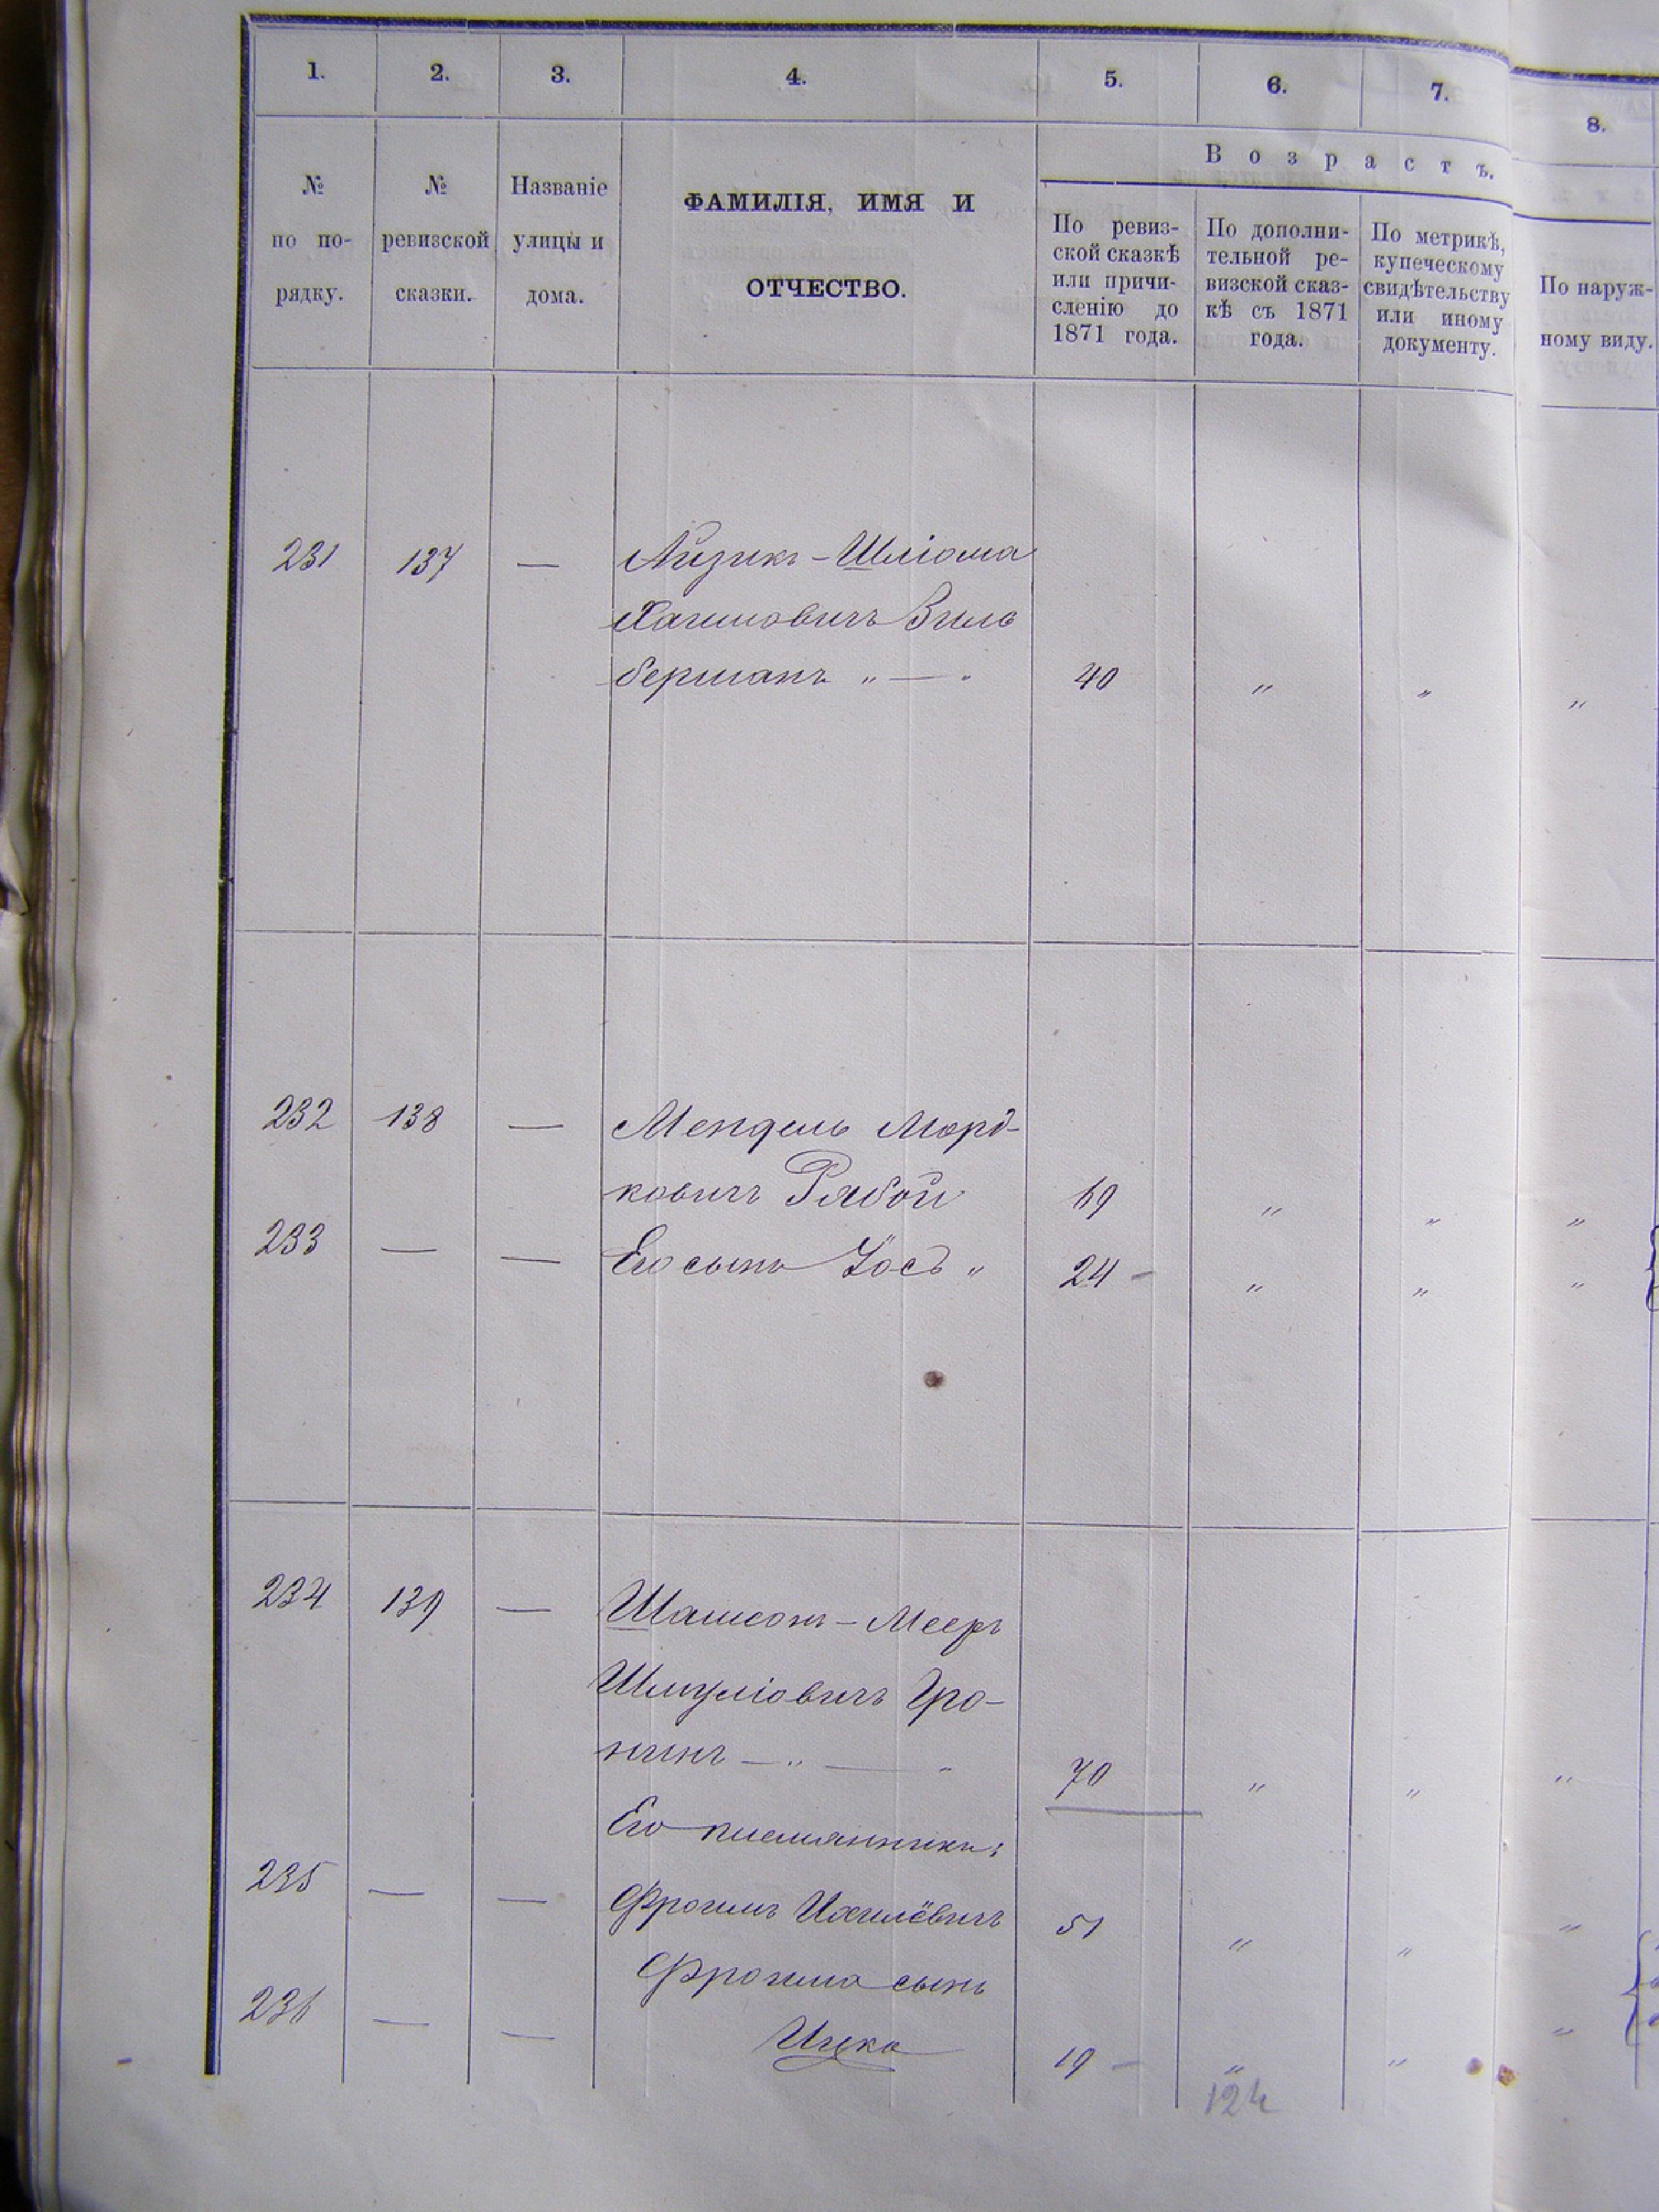 1. 2. 3. 4. 5. 6. 7. 8.
В о з р а с т ъ.
№ по порядку.
№ ревизской сказки.
Названіе улицы и дома.
ФАМИЛІЯ, ИМЯ И
ОТЧЕСТВО.
По ревиз-
ской сказкѣ
или причи-
сленію до
1871 года.
По дополни-
тельной ре-
визской сказ-
кѣ съ 1871
года.
По метрикѣ,
купеческому
свидѣтельству
или иному
документу.
По наруж-
ному виду.
231 137 — Айзикъ-Шліома
Хаимовичъ Зиль
берманъ „ — „ 40 „ „ „
232 138 — Мендель Морд-
ковичъ Рябой 69 „ „ „
233 — — Его сынъ Іось „ 24 – „ „ „
234 139 — Шамсонъ-Мееръ
Шмуліовичъ Гро-
нинъ — „ — „ 70 „ „ „
Его племянники:
235 — — Фроимъ Ихилёвичъ 51 „ „ „
Фроима сынъ
236 — — Ицка 19 – „ „ „
124